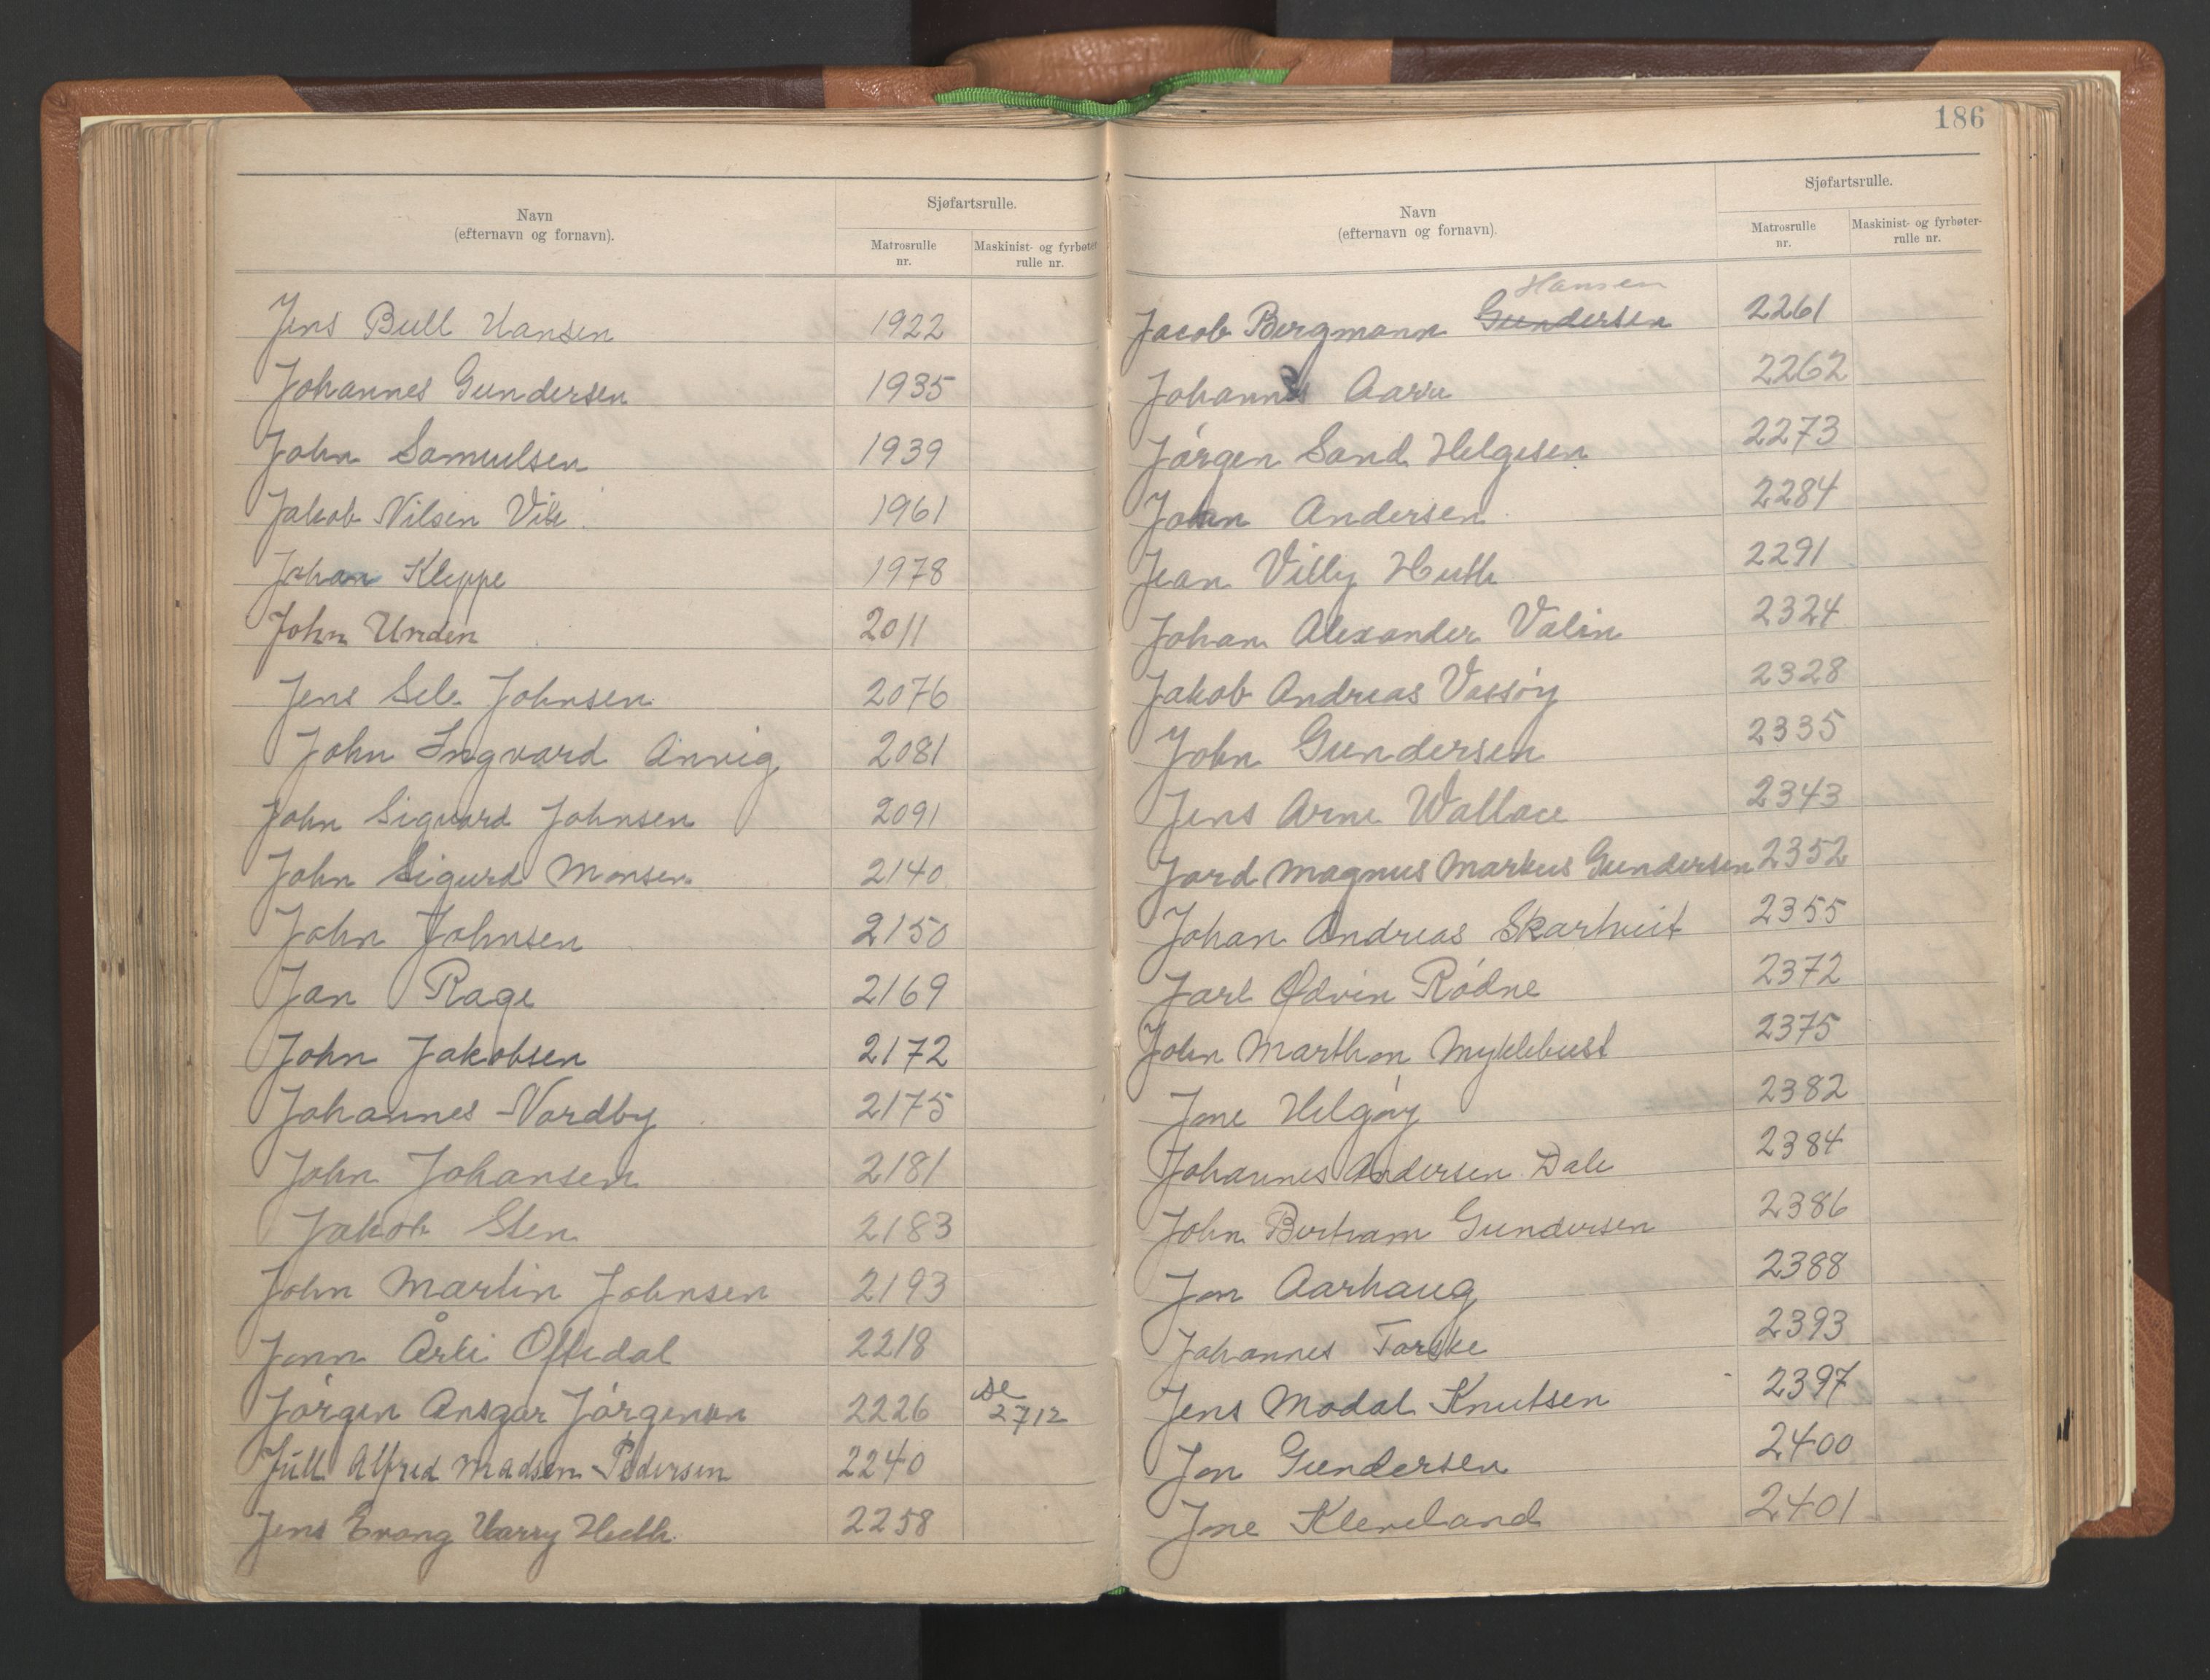 Navn
(efternavn og fornavn).
Sjøfartsrulle.
Matrosrulle
nr.
Maskinist- og fyrbøter
rulle nr.
Jens Bull Hansen 1922
Johannes Gundersen 1935
John Samuelsen 1939
Jakob Nilsen Vik 1961
Johan Kleppe 1978
John Unden 2011
Jens Sele Johnsen 2076
John Ingvard Anvig 2081
John Sigvard Johnsen 2091
John Sigurd Monsen 2140
John Johnsen 2150
Jan Rage 2169
John Jakobsen 2172
Johannes Nordby 2175
John Johansen 2181
Jakob Sten 2183
John Martin Johnsen 2193
Jonn Årli Oftedal 2218
Jørgen Ansgar Jørgensen 2226 se 2712
Jull Alfred Madsen Pedersen 2240
Jens Evang Harry Huth 2258
186
Navn
(efternavn og fornavn).
Sjøfartsrulle.
Matrosrulle
nr.
Maskinist- og fyrbøter-
rulle nr.
Hansen
Jacob Bergmann Gundersen 2261
Johannes Aarre 2262
Jørgen Sand Helgesen 2273
John Andersen 2284
Jean Villy Huth 2291
Johan Alexander Valin 2324
Jakob Andreas Vassøy 2328
John Gundersen 2335
Jens Arne Wallace 2343
Jard Magnus Markus Gundersen 2352
Johan Andreas Skartveit 2355
Jarl Ødvin Rødne 2372
John Marthon Myklebust 2375
Jone Helgøy 2382
Johannes Andersen Dale 2384
John Bertram Gundersen 2386
Jon Aarhaug 2388
Johannes Torske 2393
Jens Modal Knutsen 2397
Jon Gundersen 2400
Jone Kleveland 2401